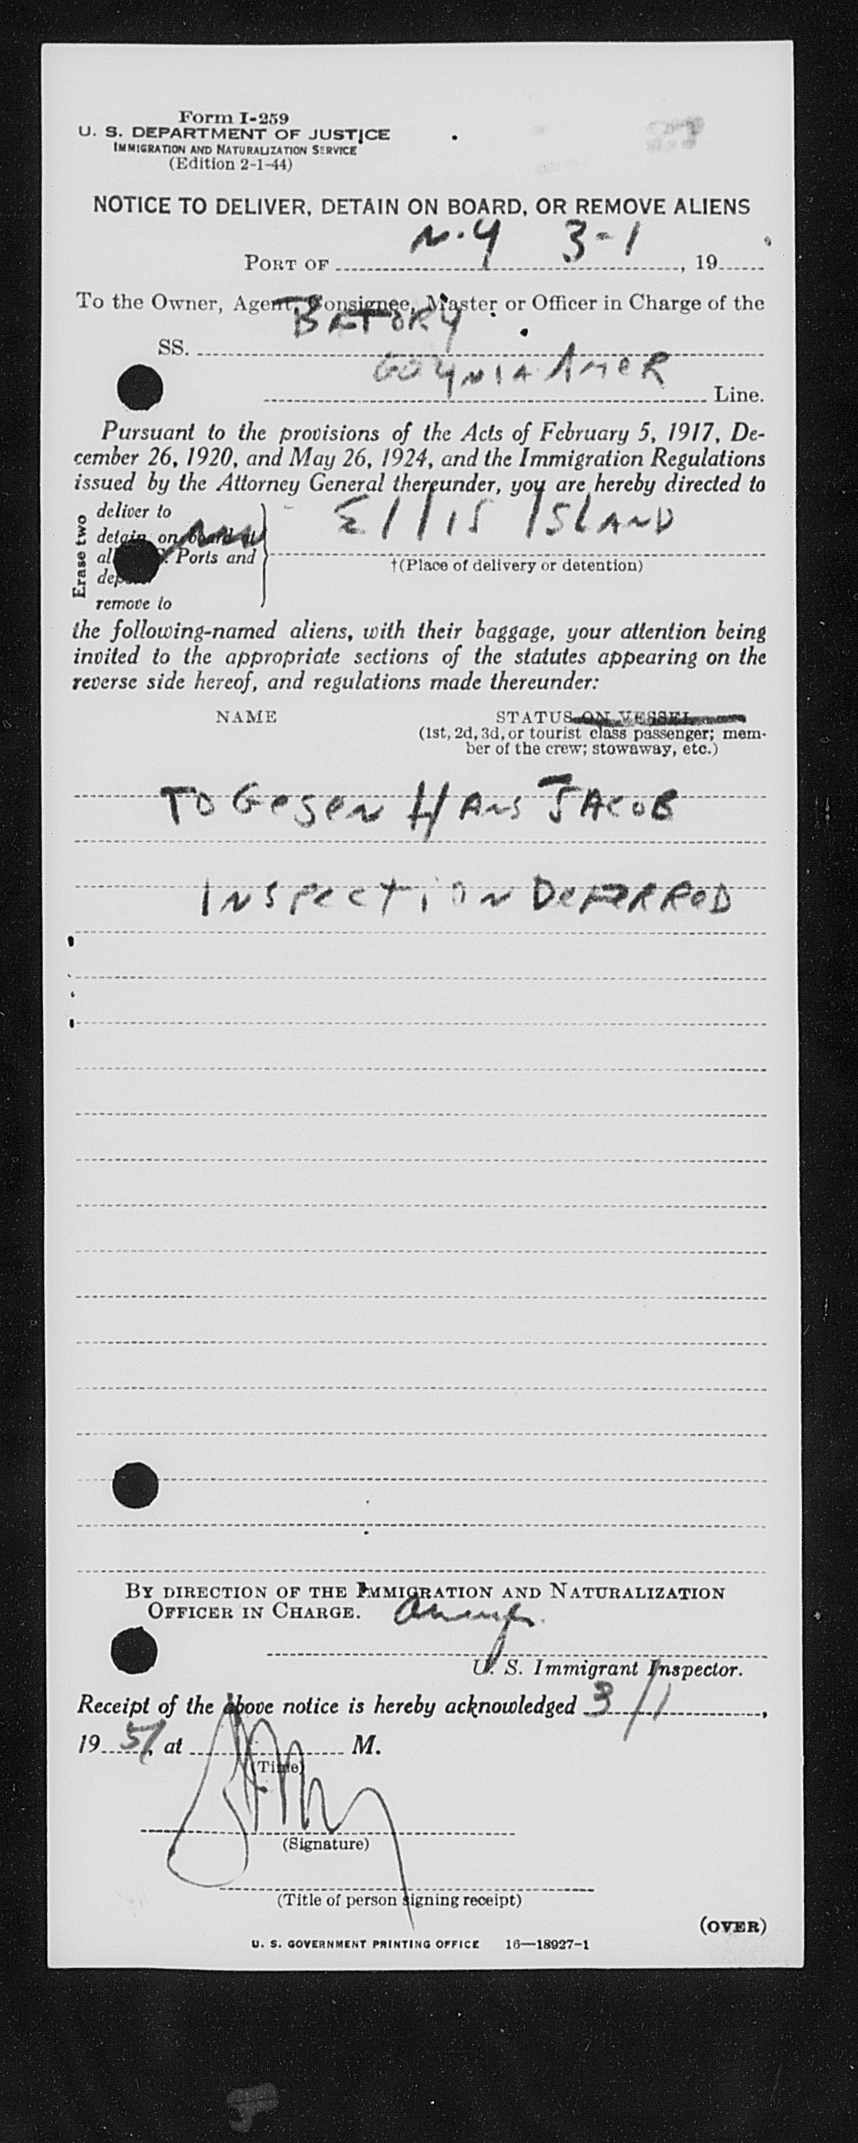 Form I-259
U. S. DEPARTMENT OF JUSTICE
IMMIGRATION AND NATURALIZATION SERVICE
(Edition 2-1-44)
NOTICE TO DELIVER, DETAIN ON BOARD, OR REMOVE ALIENS
PORT OF N.Y 3-1, 19
To the Owner, Agent, Consignee, Master or Officer in Charge of the
SS. BATORY
GDYNIA AMER Line.
Pursuant to the provisions of the Acts of February 5, 1917, De-
cember 26, 1920, and May 26, 1924, and the Immigration Regulations
issued by the Attorney General thereunder, you are hereby directed to
Erase two
deliver to
detain on board at
Ports and
remove to
Ellis Island
†(Place of delivery or detention)
the following-named aliens, with their baggage, your attention being
invited to the appropriate sections of the statutes appearing on the
reverse side hereof, and regulations made thereunder:
NAME STATUS ON VESSEL
(1st, 2d, 3d, or tourist class passenger; mem-
ber of the crew; stowaway, etc.)
TOGeseN HANS JACOB
INSPECTION DEFERRED
BY DIRECTION OF THE IMMIGRATION AND NATURALIZATION
OFFICER IN CHARGE.
U. S. Immigrant Inspector.
Receipt of the above notice is hereby acknowledged 3/1,
1951, at M.
(Time)
(Signature)
(Title of person signing receipt)
(OVER)
U. S. GOVERNMENT PRINTING OFFICE 16—18927-1